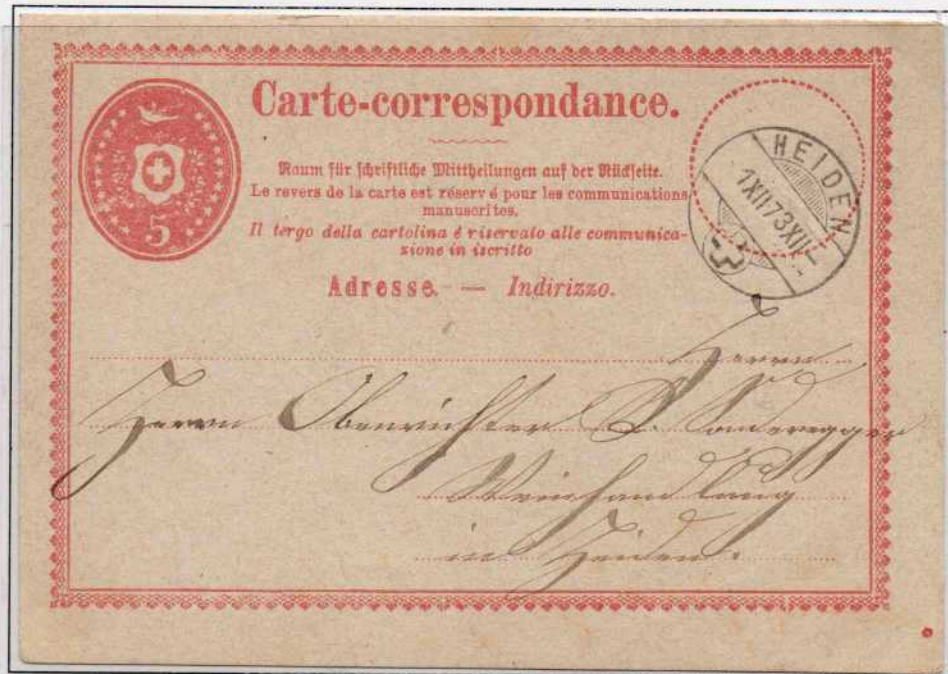 Carte-correspondance.
5
Raum für schriftliche Mittheilungen auf der Rückseite.
Le revers de la carte est réservé pour les communications
manuscrites.
Il tergo della cartolina é riservato alle communica-
zione in iscritto
Adresse. — Indirizzo.
HEIDEN
1XII73XII
Herrn
Herrn Oberrichter S. Sonderegger
Weinhandlung
in Heiden.